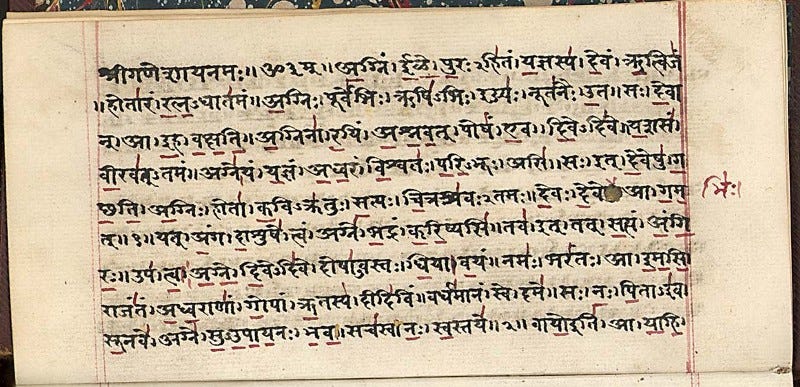 श्रीगणेशायनमः॥ॐ३म्॥अ॒ग्निं।ई॒ळे॒।पु॒रः२हि॑तं।य॒ज्ञस्य॑।दे॒वं।ऋ॒त्विजं॑
॥होता॑रं।र॒त्न॒२धात॑मं॥अ॒ग्निः।पूर्वे॑भिः।ऋषि॑२भिः।ईड्यः॑।नूत॑नैः।उ॒त॥सः।दे॒वा
न्।आ।इ॒ह।व॒क्ष॒ति॒॥अ॒ग्निना॑।र॒यिं।अ॒श्न॒व॒त्।पोषं॑।ए॒व।दि॒वे२दि॑वे॥य॒शसं॑
वी॒रव॑त्२तमं॥अग्ने॑।यं।य॒ज्ञं।अ॒ध्व॒रं।वि॒श्वतः॑।प॒रि॒२भूः।असि॑॥सः।इत्।दे॒वेषु॑।ग॒
च्छ॒ति॒।अ॒ग्निः।होता॑।क॒वि२क्र॑तुः।स॒त्यः।चि॒त्रश्र॑वः२तमः॥दे॒वः।दे॒वे आ।ग॒म॒
भिः॑।
त्॥१॥यत्।अं॒ग।दा॒शुषे॑।त्वं।अग्ने॑।भ॒द्रं।क॒रि॒ष्यसि॑॥तव॑।इत्।तत्।स॒त्यं।अं॒गि॒
रः॒॥उप॑।त्वा॒।अ॒ग्ने॒।दि॒वे२दि॑वे।दोषा॑२वस्तः।धि॒या।व॒यं॥नमः॑।भरं॑तः।आ।इ॒म॒सि॒
राजं॑तं।अ॒ध्व॒राणां॑।गो॒पां।ऋ॒तस्य॑।दीदि॑विं॥वर्ध॑मानं।स्वे।दमे॑॥सः।नः॒।पि॒ता२इ॑व।
सू॒नवे॑।अग्ने॑।सु॒२उ॒पा॒य॒नः।भ॒व॒॥सच॑स्व।नः॒।स्व॒स्तये॑॥२॥वायो॒इति॑।आ।या॒हि॒।